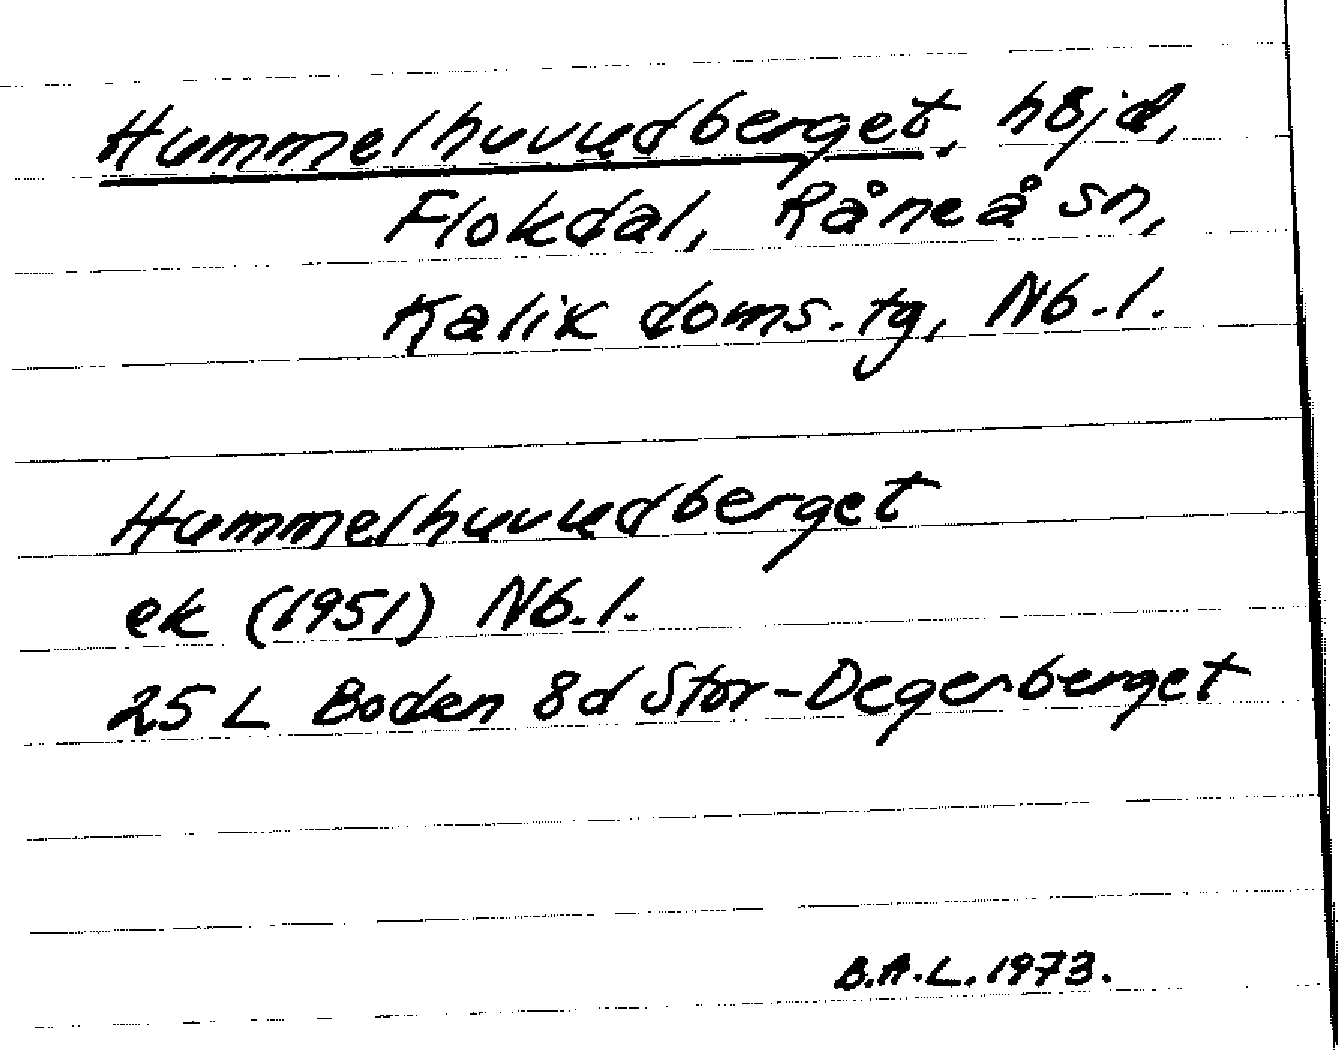 Hummelhuvudberget, höjd,
Flokdal, Råneå sn,
Kalix doms.tg, Nb.l.
Hummelhuvudberget
ek (1951) Nb.l.
25 L Boden 8d Stor-Degerberget
B.A.L. 1973.